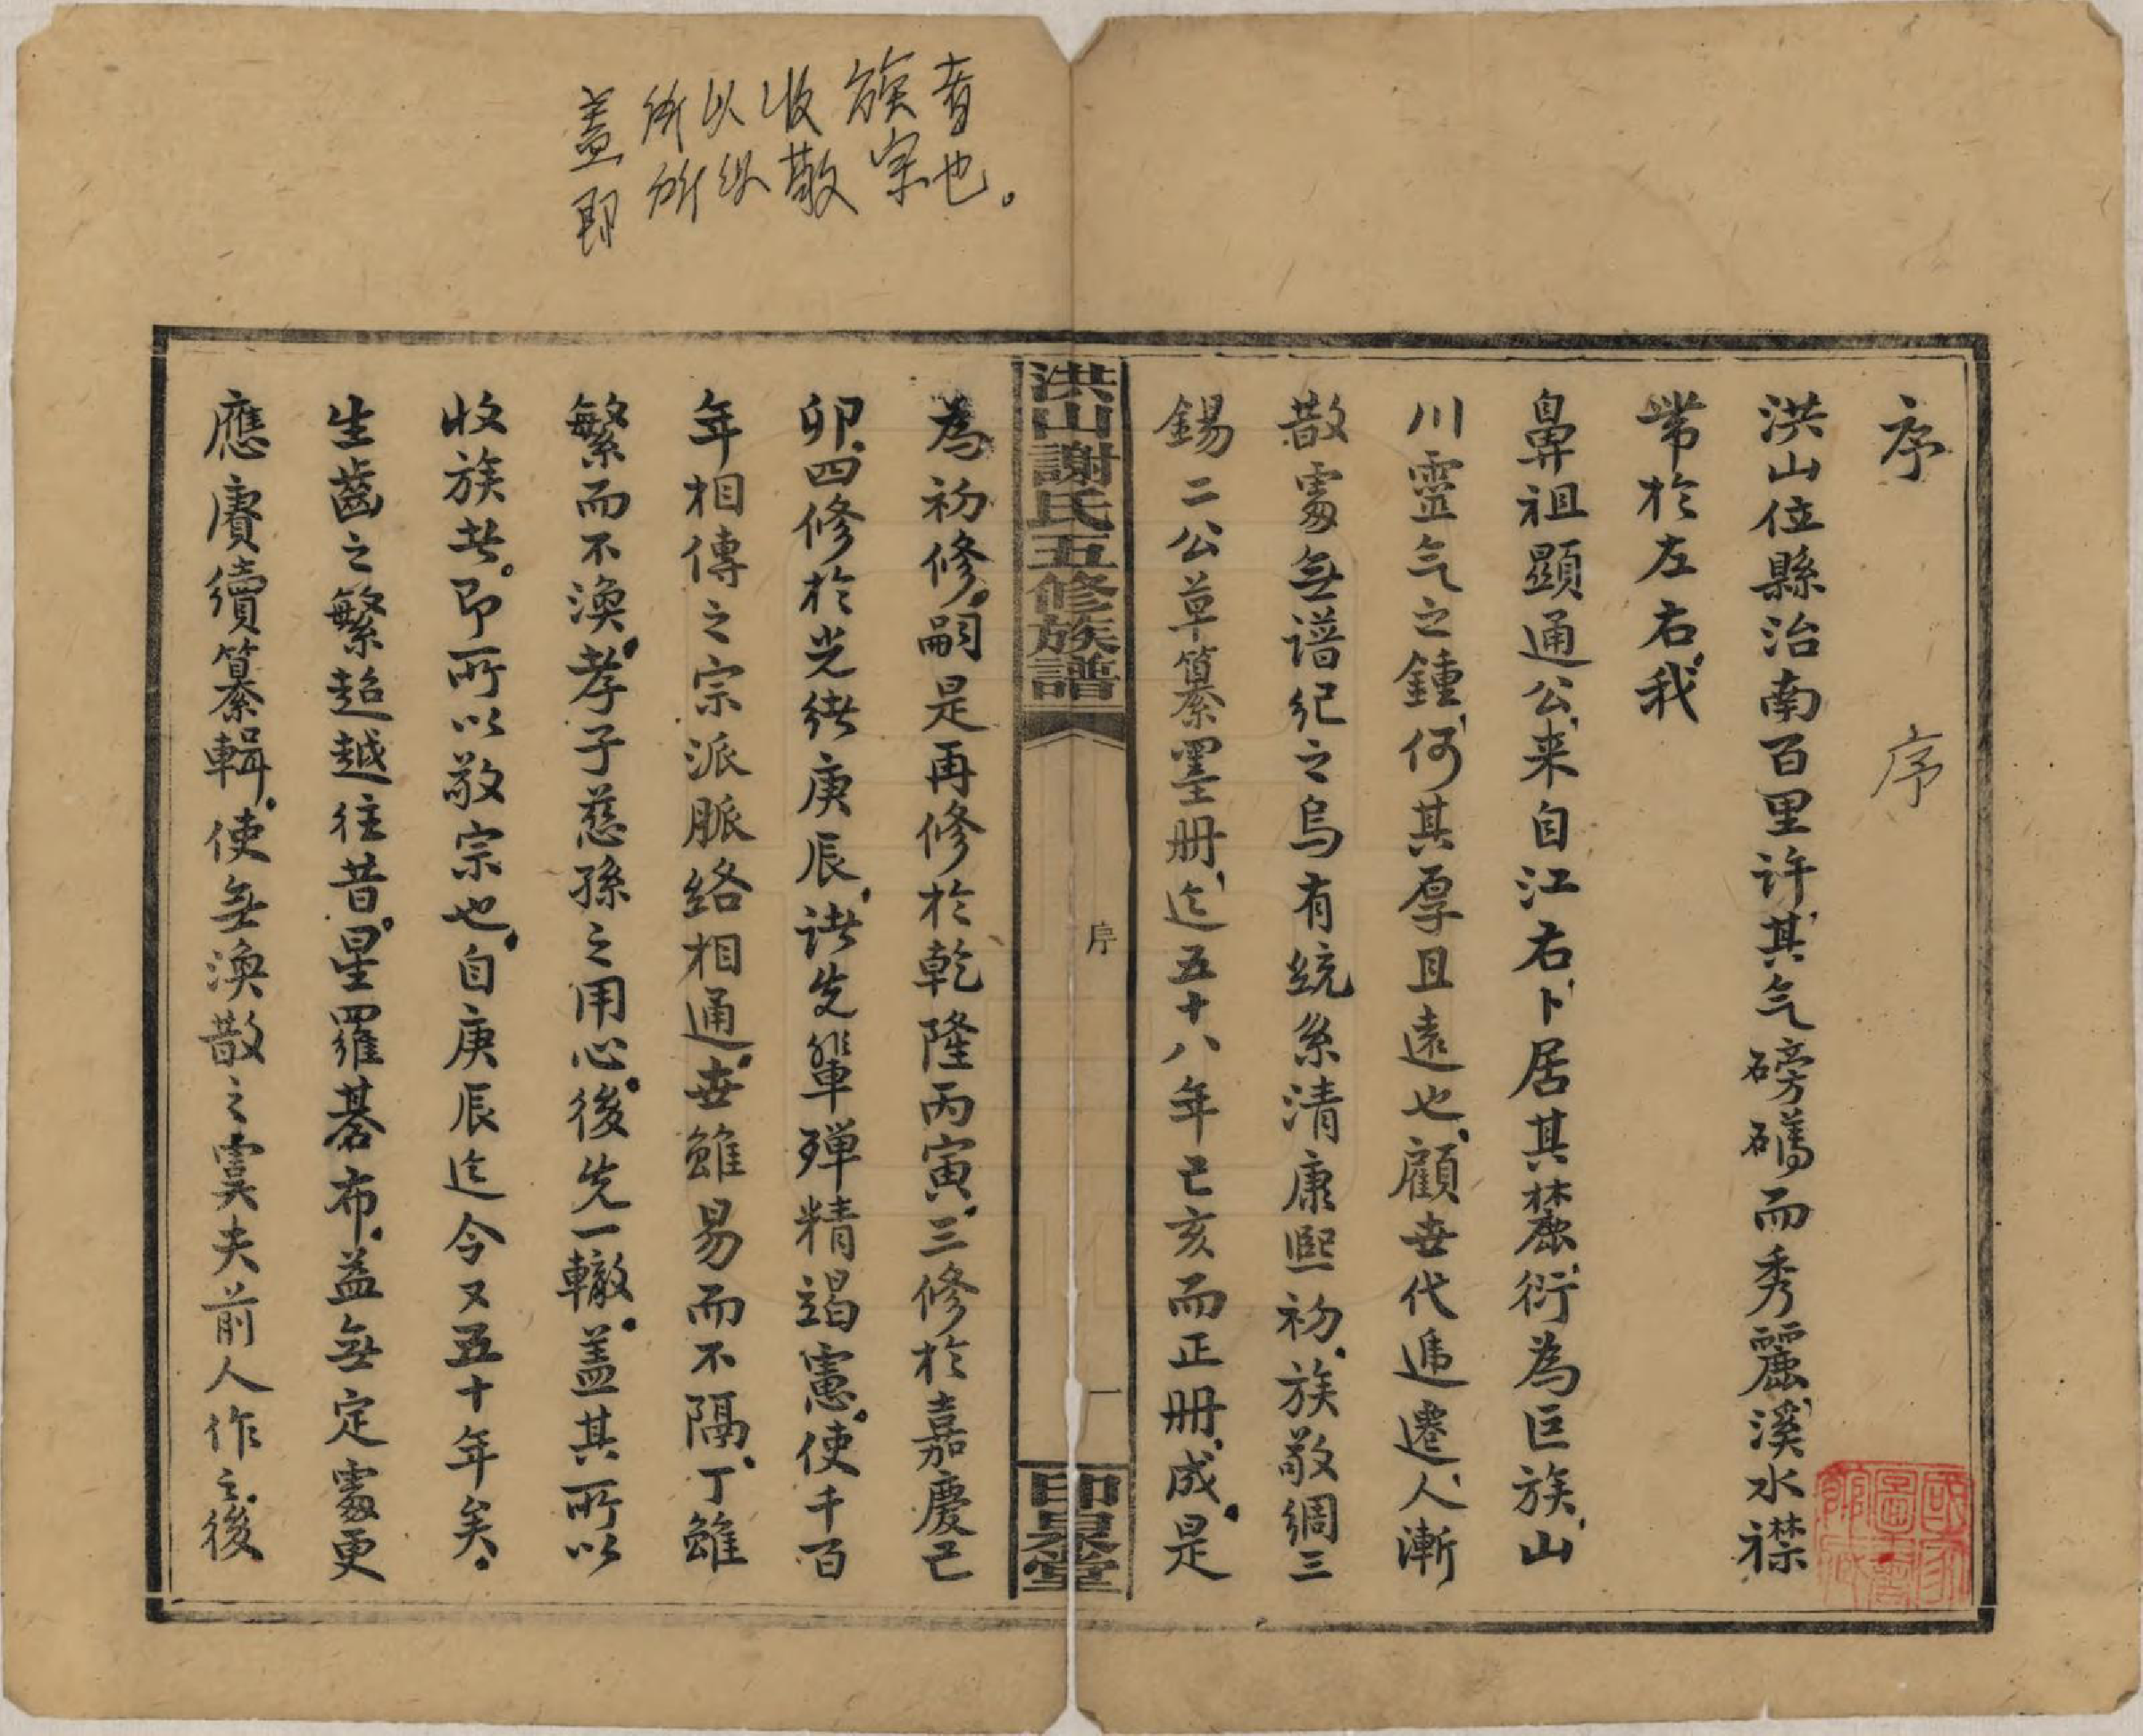 序
序
洪山位縣治南百里許其气磅礴而秀麗溪水襟
帶於左右我
鼻祖顯通公来自江右卜居其麓衍為巨族山
川靈气之鍾何其厚且遠也顧世代遞遷人漸
散處無谱纪之烏有统系清康熙初族敬綢三
錫二公草纂墨册迄五十八年己亥而正册成是
洪山謝氏五修族譜
序
一
印泉堂
為初修嗣是再修於乾隆丙寅三修於嘉慶己
卯四修於光绪庚辰诸先輩殫精竭慮使千百
年相傳之宗派脈络相通世雖易而不隔丁雖
繁而不渙孝子慈孫之用心後先一轍盖其所以
收族者即所以敬宗也自庚辰迄今又五十年矣
生齒之繁超越往昔星羅碁布益無定處更
應賡續纂輯使無渙散之虞夫前人作之後
盖 所 以 收 族 者
即 所 以 敬 宗 也。
國家圖書館藏